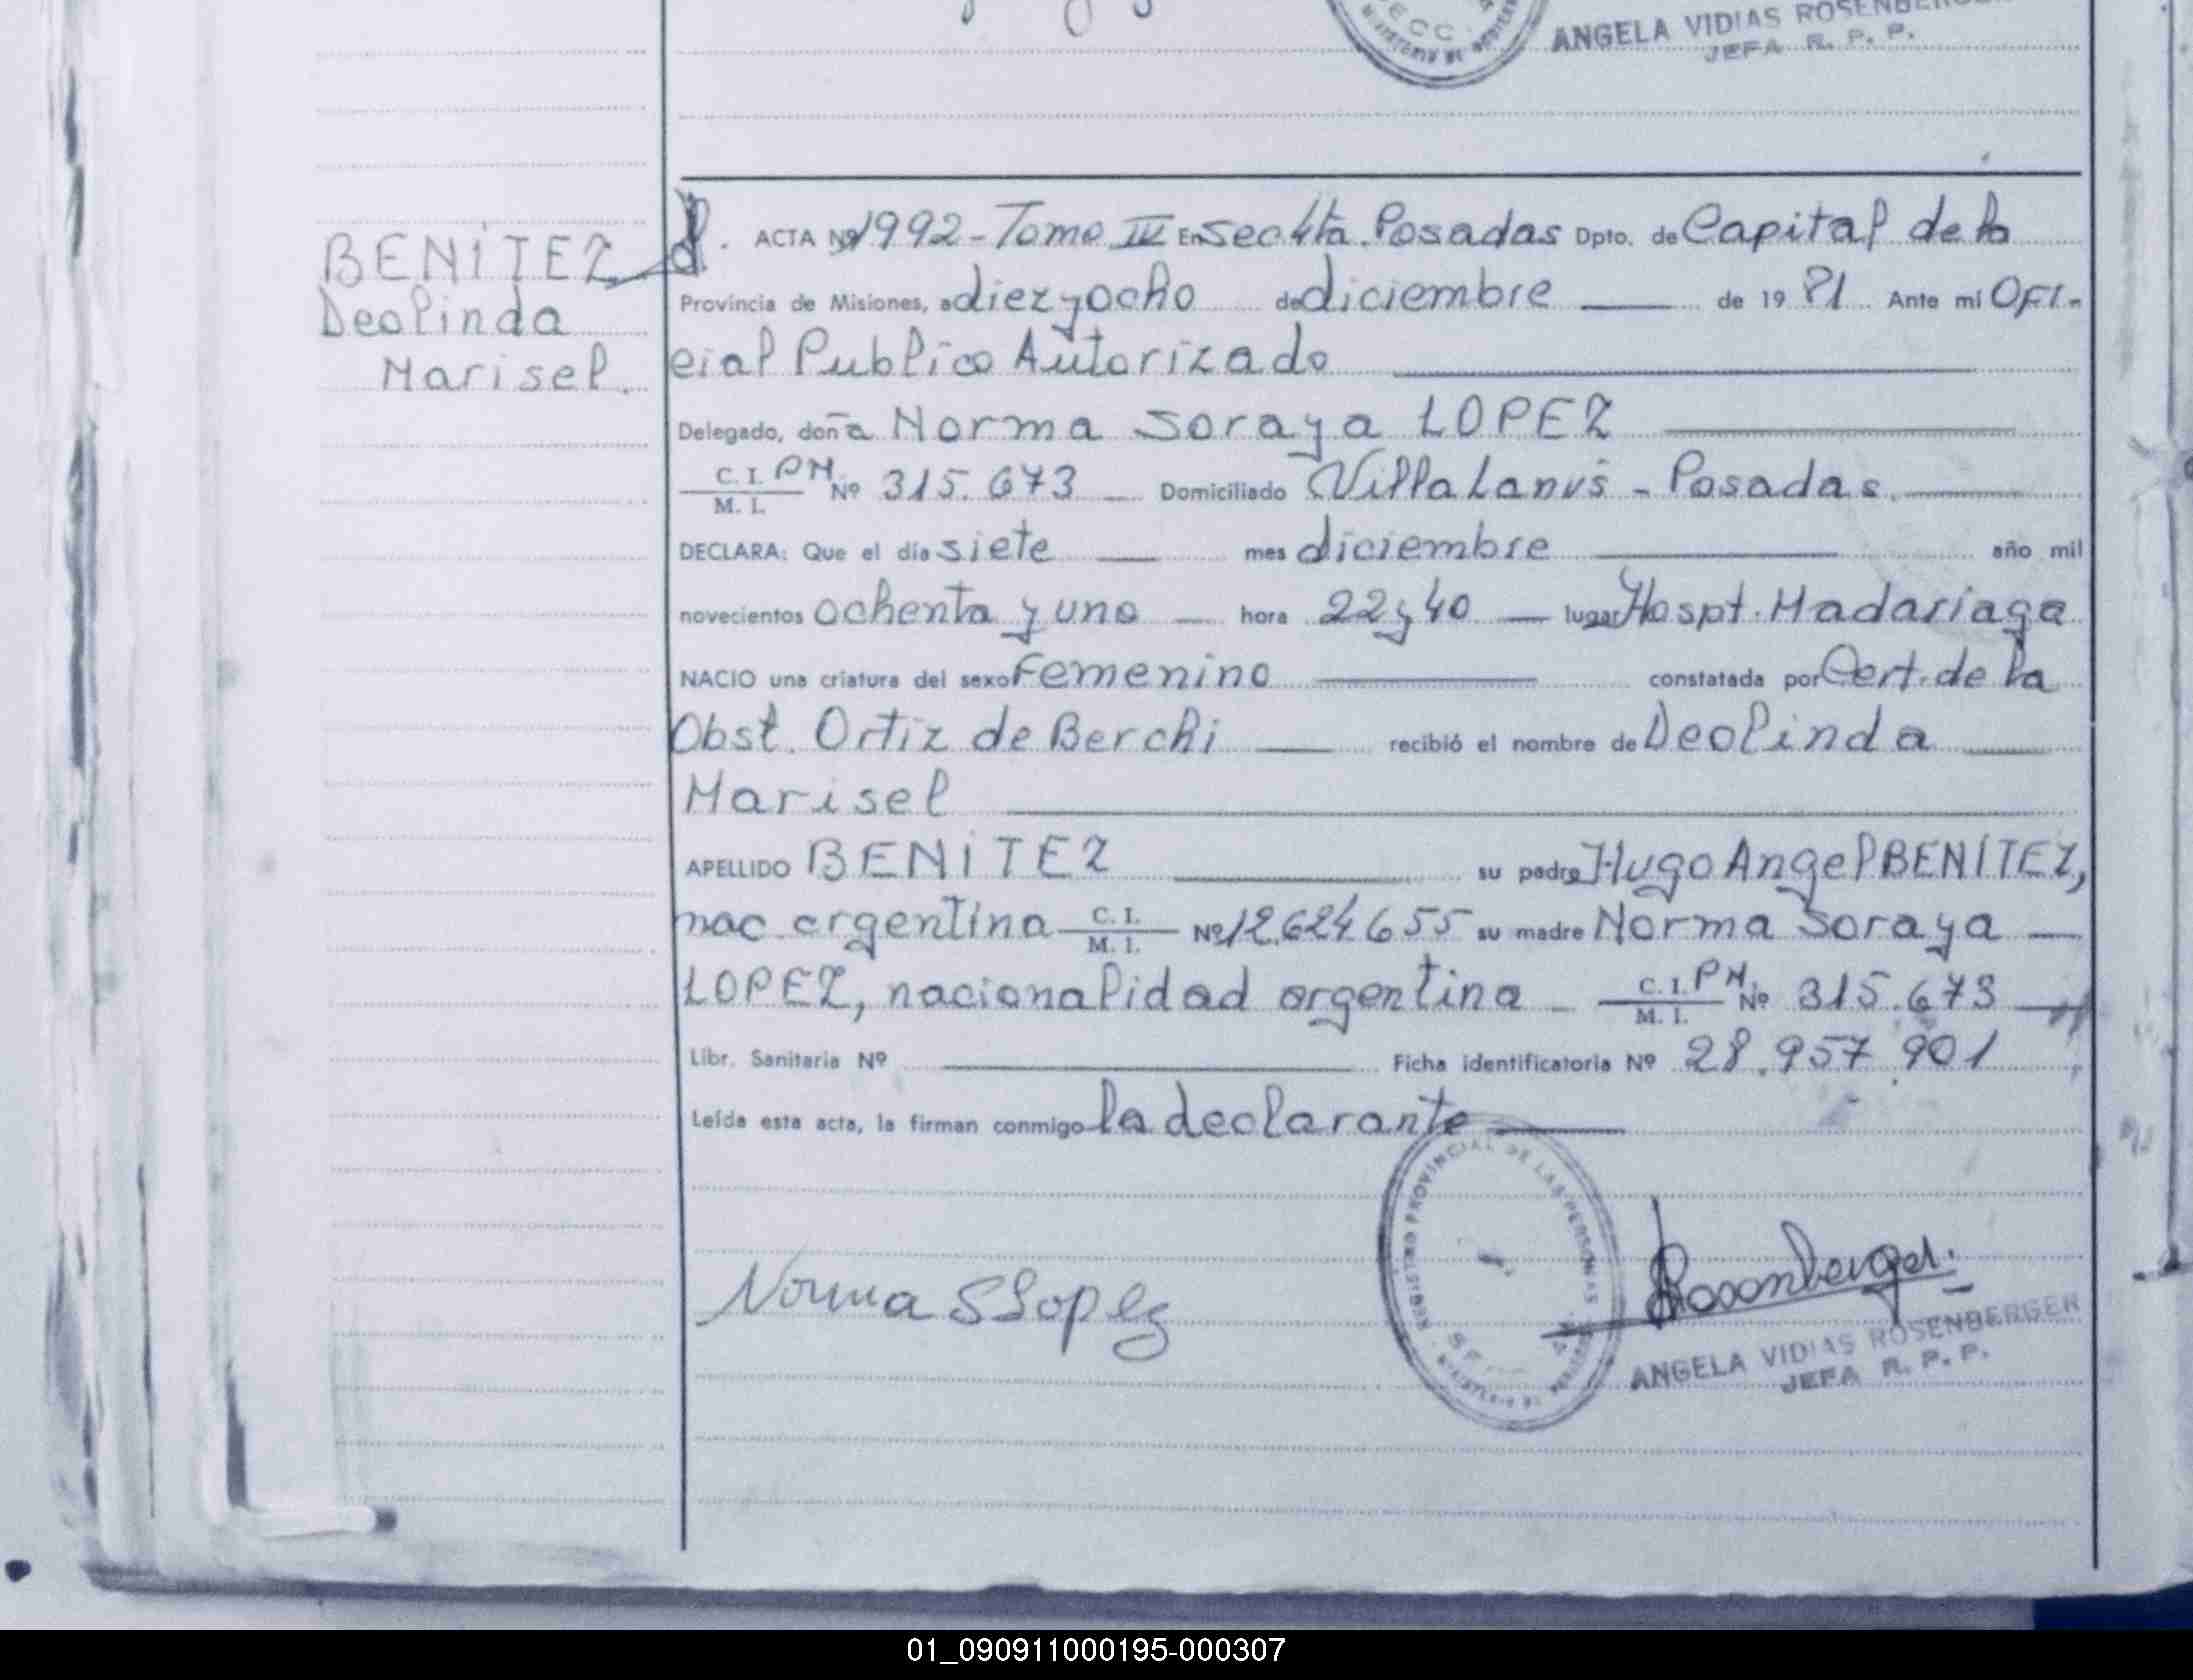 ANGELA VIDIAS ROSENBERGER
JEFA R. P. P.
BENÍTEZ
Deolinda
Marisel.
ACTA Nº 1992 - Tomo IV En Secc 4ta. Posadas Dpto. de Capital de la
Provincia de Misiones, a diez y ocho de diciembre de 19 81 Ante mi OFI-
cial Publico Autorizado
Delegado, doña Norma Soraya LOPEZ
C. I. PM. Nº 315.673 Domiciliado Villa Lanús - Posadas.
M. I.
DECLARA: Que el día siete mes diciembre año mil
novecientos ochenta y uno hora 22 y 40 lugar Hospt. Madariaga
NACIO una criatura del sexo Femenino constatada por Cert. de la
Obst. Ortiz de Berchi recibió el nombre de Deolinda
Marisel
APELLIDO BENÍTEZ su padre Hugo Angel BENÍTEZ,
nac. argentina C. I. Nº 12.624.655 su madre Norma Soraya
M. I.
LOPEZ, nacionalidad argentina C. I. PM. Nº 315.673
M. I.
Libr. Sanitaria Nº Ficha identificatoria Nº 28.957.901
Leída esta acta, la firman conmigo la declarante
REGISTRO PROVINCIAL DE LAS PERSONAS
Norma S Lopez
Rosenberger.
ANGELA VIDIAS ROSENBERGER
JEFA R. P. P.
01_090911000195-000307